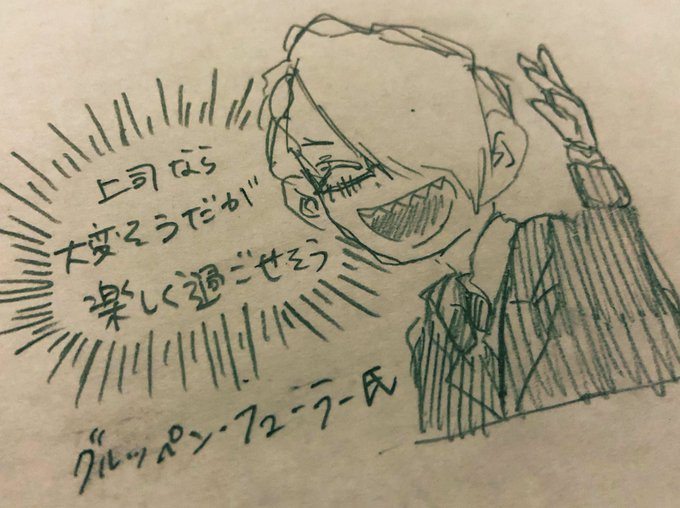 上司なら
大変そうだが
楽しく過ごせそう
グルッペン・フューラー氏